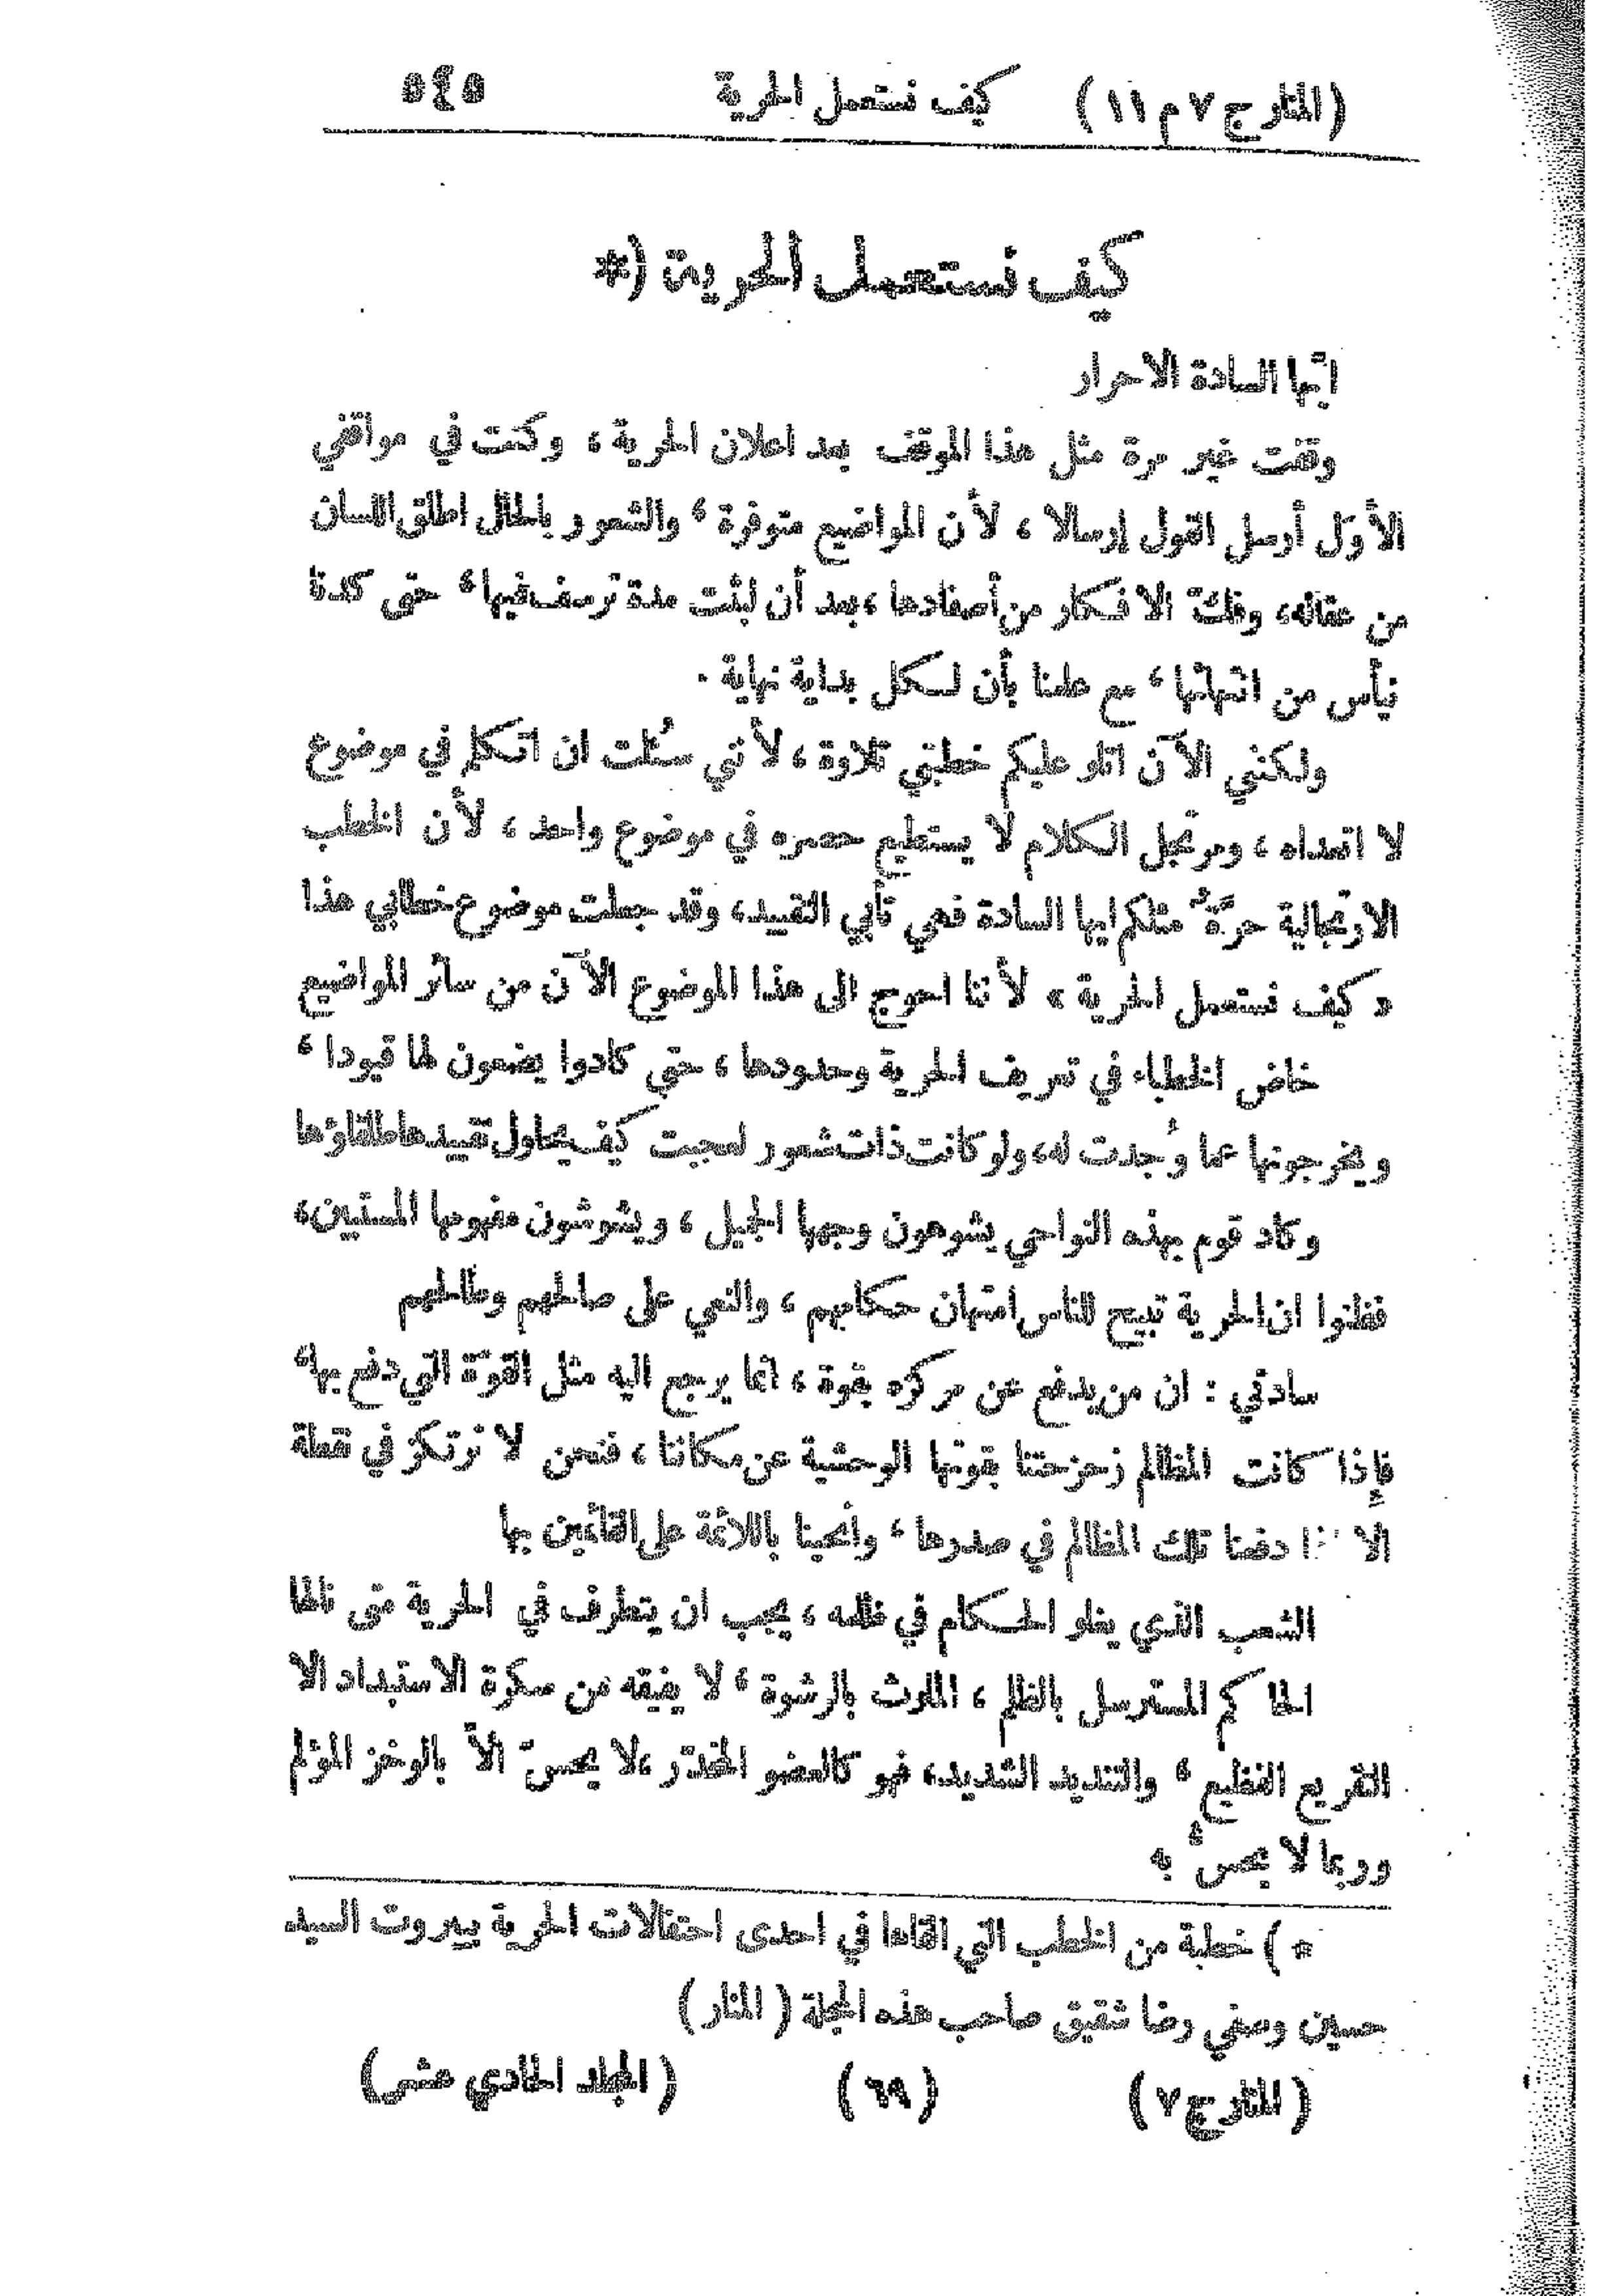 (المنار ج ٧ م ١١) كيف نستعمل الحرية ٥٤٥
كيف نستعمل الحرية (*
ايّها السادة الاحرار
وقفت غير مرة مثل هذا الموقف بعد اعلان الحرية، وكنت في مواقفي
الأوَل أرسل القول إرسالا، لأن المواضيع متوفرة، والشعور بالحال اطلق اللسان
من عقاله، وفكّ الافكار من أصفادها، بعد أن لبثت مدة ترسف فيها، حتى كدنا
نيأس من انتهائها، مع علمنا بأن لكل بداية نهاية.
ولكنني الآن اتلو عليكم خطبتي تلاوة، لأني سُئلت ان اتكلم في موضوع
لا اتعداه، ومرتجل الكلام لا يستطيع حصره في موضوع واحد، لأن الخطب
الارتجالية حرَّةٌ مثلكم ايها السادة فهي تأبى التقييد، وقد جعلت موضوع خطابي هذا
« كيف نستعمل الحرية » لأننا احوج الى هذا الموضوع الآن من سائر المواضيع
خاض الخطباء في تعريف الحرية وحدودها، حتى كادوا يضعون لها قيودا،
ويخرجونها عما وُجدت له، ولو كانت ذات شعور لعجبت كيف يحاول تقييدها طلقاؤها
وكاد قوم بهذه النواحي يشوهون وجهها الجميل، ويشوشون مفهومها المستبين،
فظنوا ان الحرية تبيح للناس امتهان حكامهم، والنعي على صالحهم وطالحهم
سادتي : ان من يدفع عن مركزه بقوة، انما يرجع اليه مثل القوّة التي دفع بها،
فإذا كانت المظالم زحزحتنا بقوتها الوحشية عن مكاننا، فنحن لا نرتكز في نقطة
الا اذا دفعنا تلك المظالم في صدرها، وأنحينا باللائمة على القائمين بها
الشعب الذي يغلو الحكام في ظلمه، يجب ان يتطرف في الحرية متى نالها
الحاكم المسترسل بالظلم، الملوث بالرشوة، لا يفيقه من سكرة الاستبداد الا
التقريع الفظيع، والتنديد الشديد، فهو كالعضو المخدّر، لا يحسّ الاّ بالوخز المؤلم
وربما لا يحسُّ به
*) خطبة من الخطب التي القاها في احدى احتفالات الحرية ببيروت السيد
حسين وصفي رضا شقيق صاحب هذه المجلة (المنار)
(المنار ج ٧) (٦٩) (المجلد الحادي عشر)